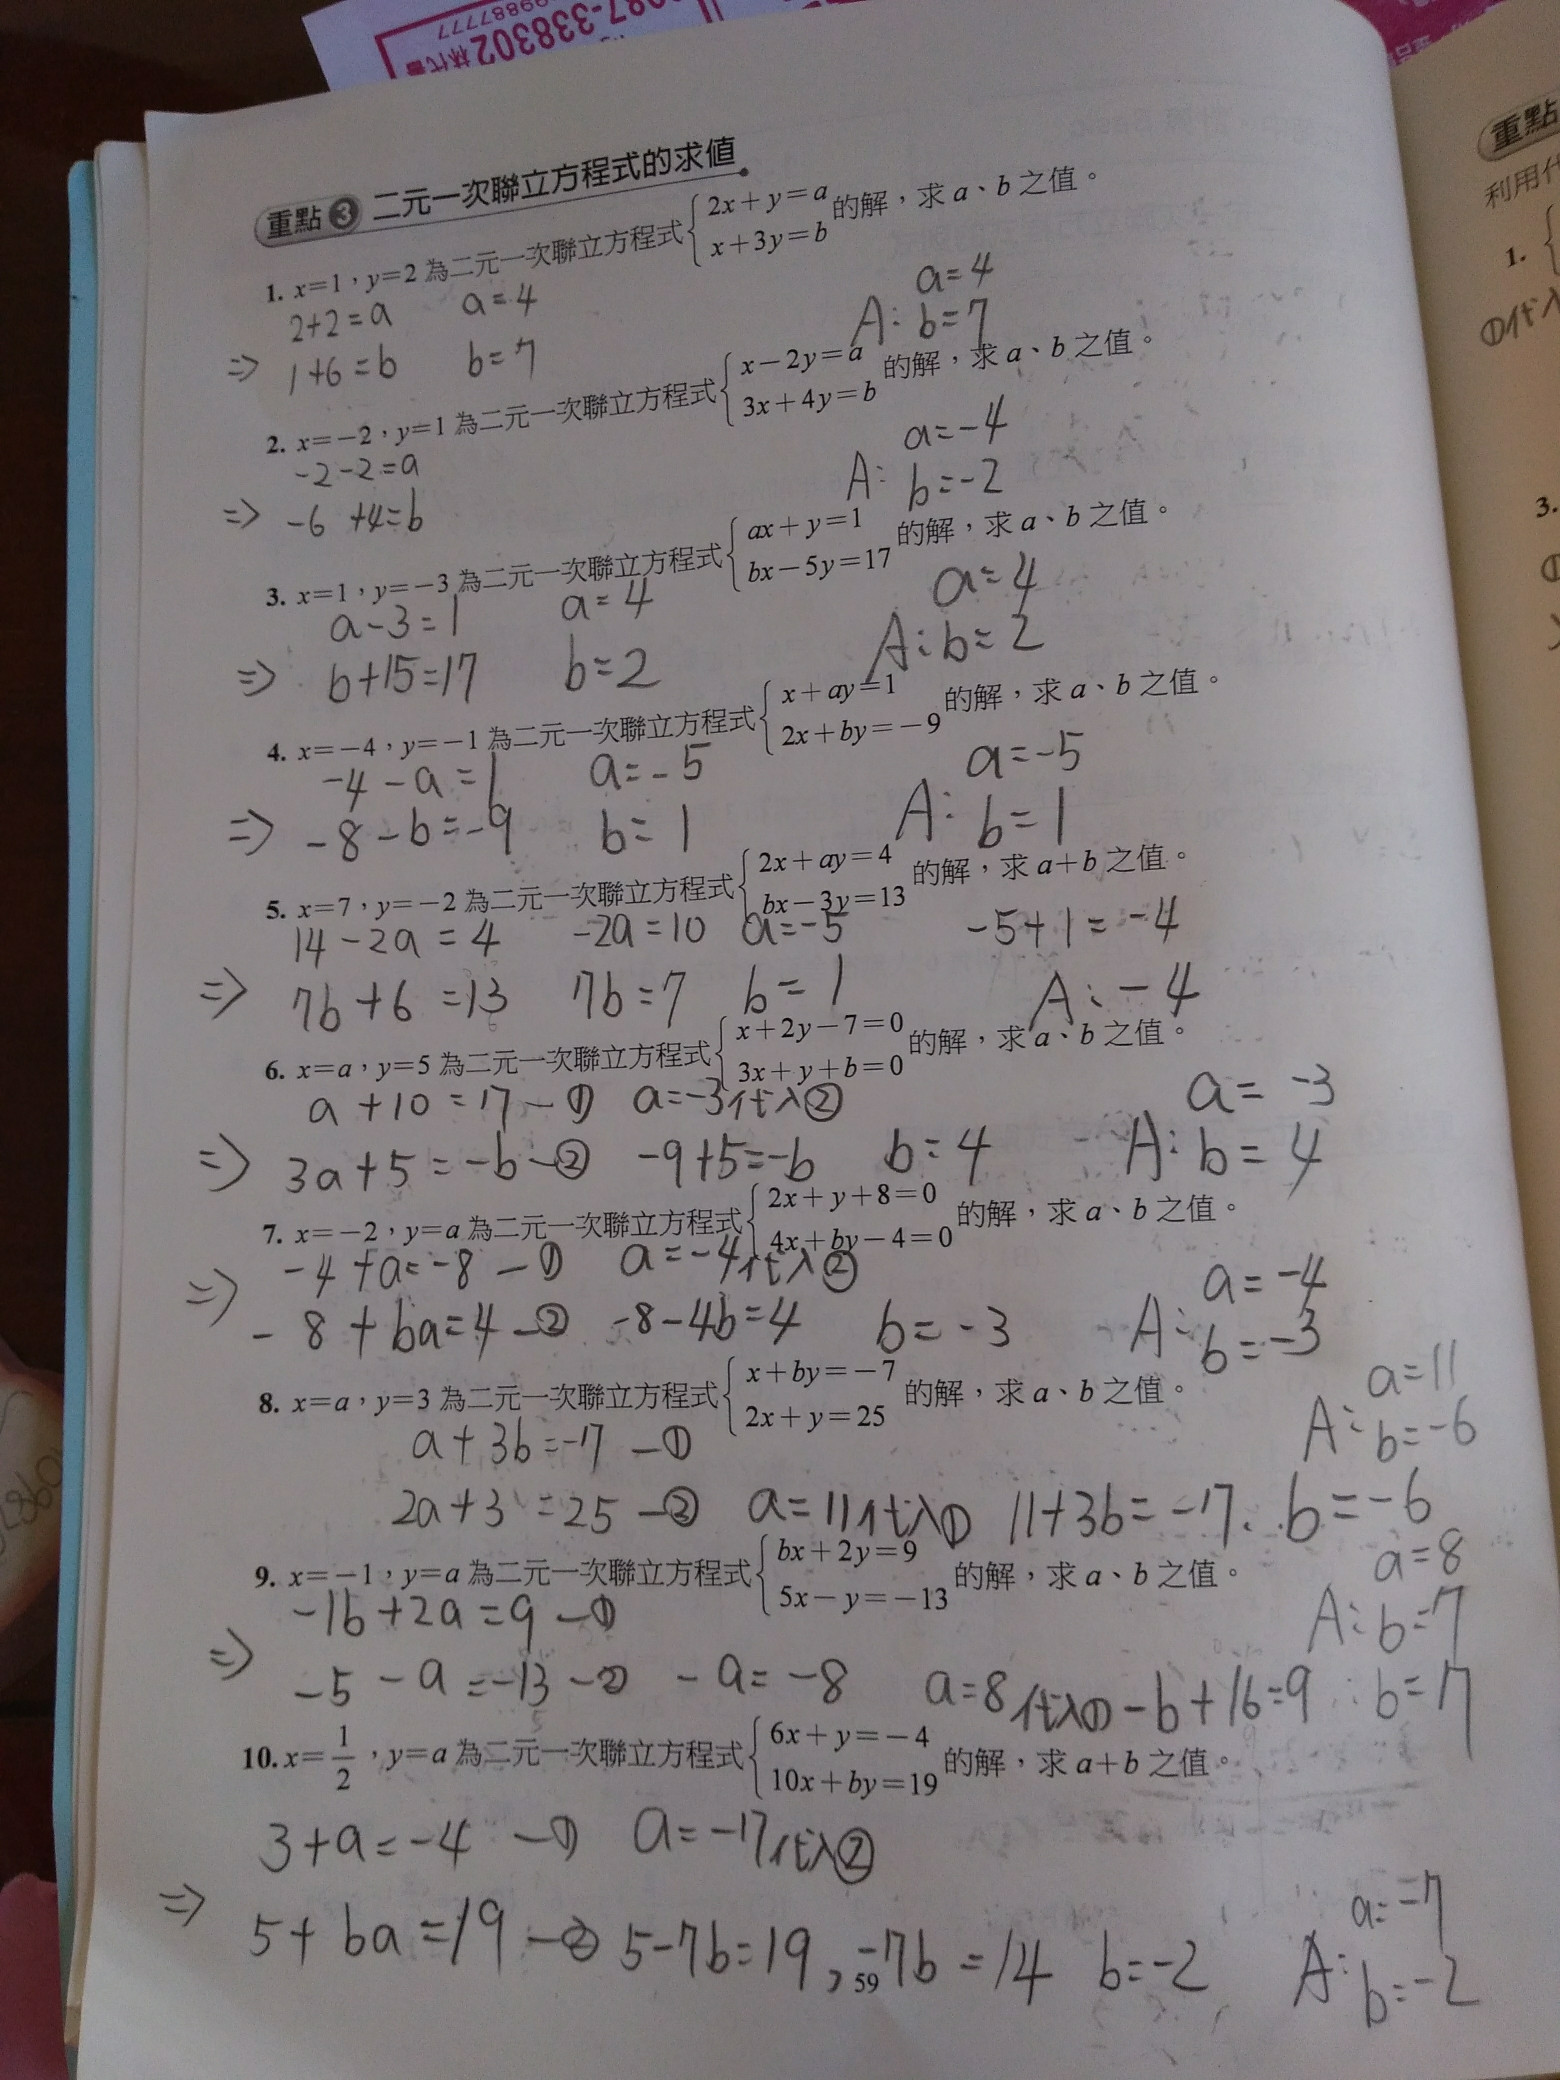 087-338302 林代書
99887777
重點3 二元一次聯立方程式的求值
1. x=1，y=2 為二元一次聯立方程式 { 2x+y=a
x+3y=b 的解，求 a、b 之值。
2+2=a a=4 a=4
⇒ 1+6=b b=7 A: b=7
2. x=-2，y=1 為二元一次聯立方程式 { x-2y=a
3x+4y=b 的解，求 a、b 之值。
-2-2=a a=-4
⇒ -6+4=b A: b=-2
3. x=1，y=-3 為二元一次聯立方程式 { ax+y=1
bx-5y=17 的解，求 a、b 之值。
a-3=1 a=4 a=4
⇒ b+15=17 b=2 A: b=2
4. x=-4，y=-1 為二元一次聯立方程式 { x+ay=1
2x+by=-9 的解，求 a、b 之值。
-4-a=1 a=-5 a=-5
⇒ -8-b=-9 b=1 A: b=1
5. x=7，y=-2 為二元一次聯立方程式 { 2x+ay=4
bx-3y=13 的解，求 a+b 之值。
14-2a=4 -2a=10 a=-5 -5+1=-4
⇒ 7b+6=13 7b=7 b=1 A: -4
6. x=a，y=5 為二元一次聯立方程式 { x+2y-7=0
3x+y+b=0 的解，求 a、b 之值。
a+10=7-① a=-3代入② a=-3
⇒ 3a+5=-b-② -9+5=-b b=4 A: b=4
7. x=-2，y=a 為二元一次聯立方程式 { 2x+y+8=0
4x+by-4=0 的解，求 a、b 之值。
-4+a=-8-① a=-4代入② a=-4
⇒ -8+ba=4-② -8-4b=4 b=-3 A: b=-3
8. x=a，y=3 為二元一次聯立方程式 { x+by=-7
2x+y=25 的解，求 a、b 之值。
a=11
A: b=-6
a+3b=-7-①
2a+3=25-② a=11代入① 11+3b=-7. b=-6
9. x=-1，y=a 為二元一次聯立方程式 { bx+2y=9
5x-y=-13 的解，求 a、b 之值。
a=8
A: b=7
-1b+2a=9-①
⇒ -5-a=-13-② -a=-8 a=8代入① -b+16=9 b=7
10. x=1/2，y=a 為二元一次聯立方程式 { 6x+y=-4
10x+by=19 的解，求 a+b 之值。
3+a=-4-① a=-7代入②
⇒ 5+ba=19-② 5-7b=19, -7b=14 b=-2
a=-7
A: b=-2
59
重點
利用代
1.
①代入
3.